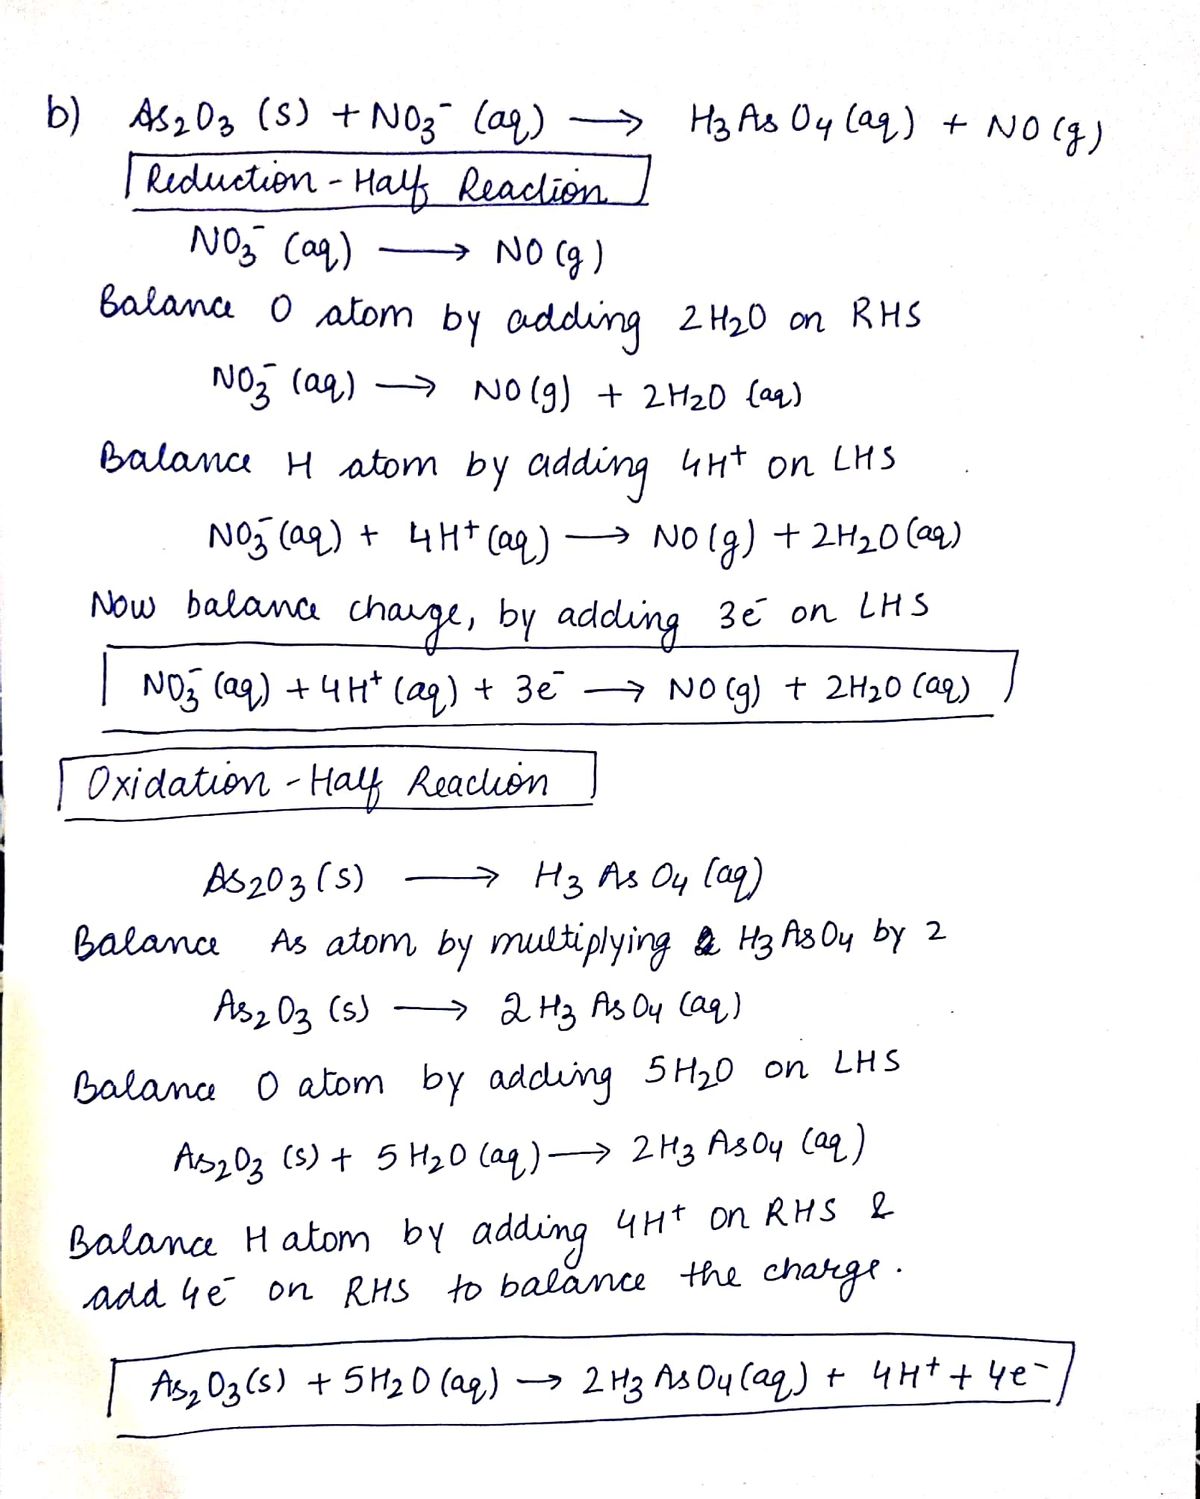 b) As₂O₃ (s) + NO₃⁻ (aq) ⟶ H₃AsO₄ (aq) + NO (g)
Reduction - Half Reaction
NO₃⁻ (aq) ⟶ NO (g)
Balance O atom by adding 2H₂O on RHS
NO₃⁻ (aq) ⟶ NO (g) + 2H₂O (aq)
Balance H atom by adding 4H⁺ on LHS
NO₃⁻ (aq) + 4H⁺ (aq) ⟶ NO (g) + 2H₂O (aq)
Now balance charge, by adding 3e⁻ on LHS
NO₃⁻ (aq) + 4H⁺ (aq) + 3e⁻ ⟶ NO (g) + 2H₂O (aq)
Oxidation - Half Reaction
As₂O₃ (s) ⟶ H₃AsO₄ (aq)
Balance As atom by multiplying H₃AsO₄ by 2
As₂O₃ (s) ⟶ 2H₃AsO₄ (aq)
Balance O atom by adding 5H₂O on LHS
As₂O₃ (s) + 5H₂O (aq) ⟶ 2H₃AsO₄ (aq)
Balance H atom by adding 4H⁺ on RHS &
add 4e⁻ on RHS to balance the charge.
As₂O₃ (s) + 5H₂O (aq) ⟶ 2H₃AsO₄ (aq) + 4H⁺ + 4e⁻